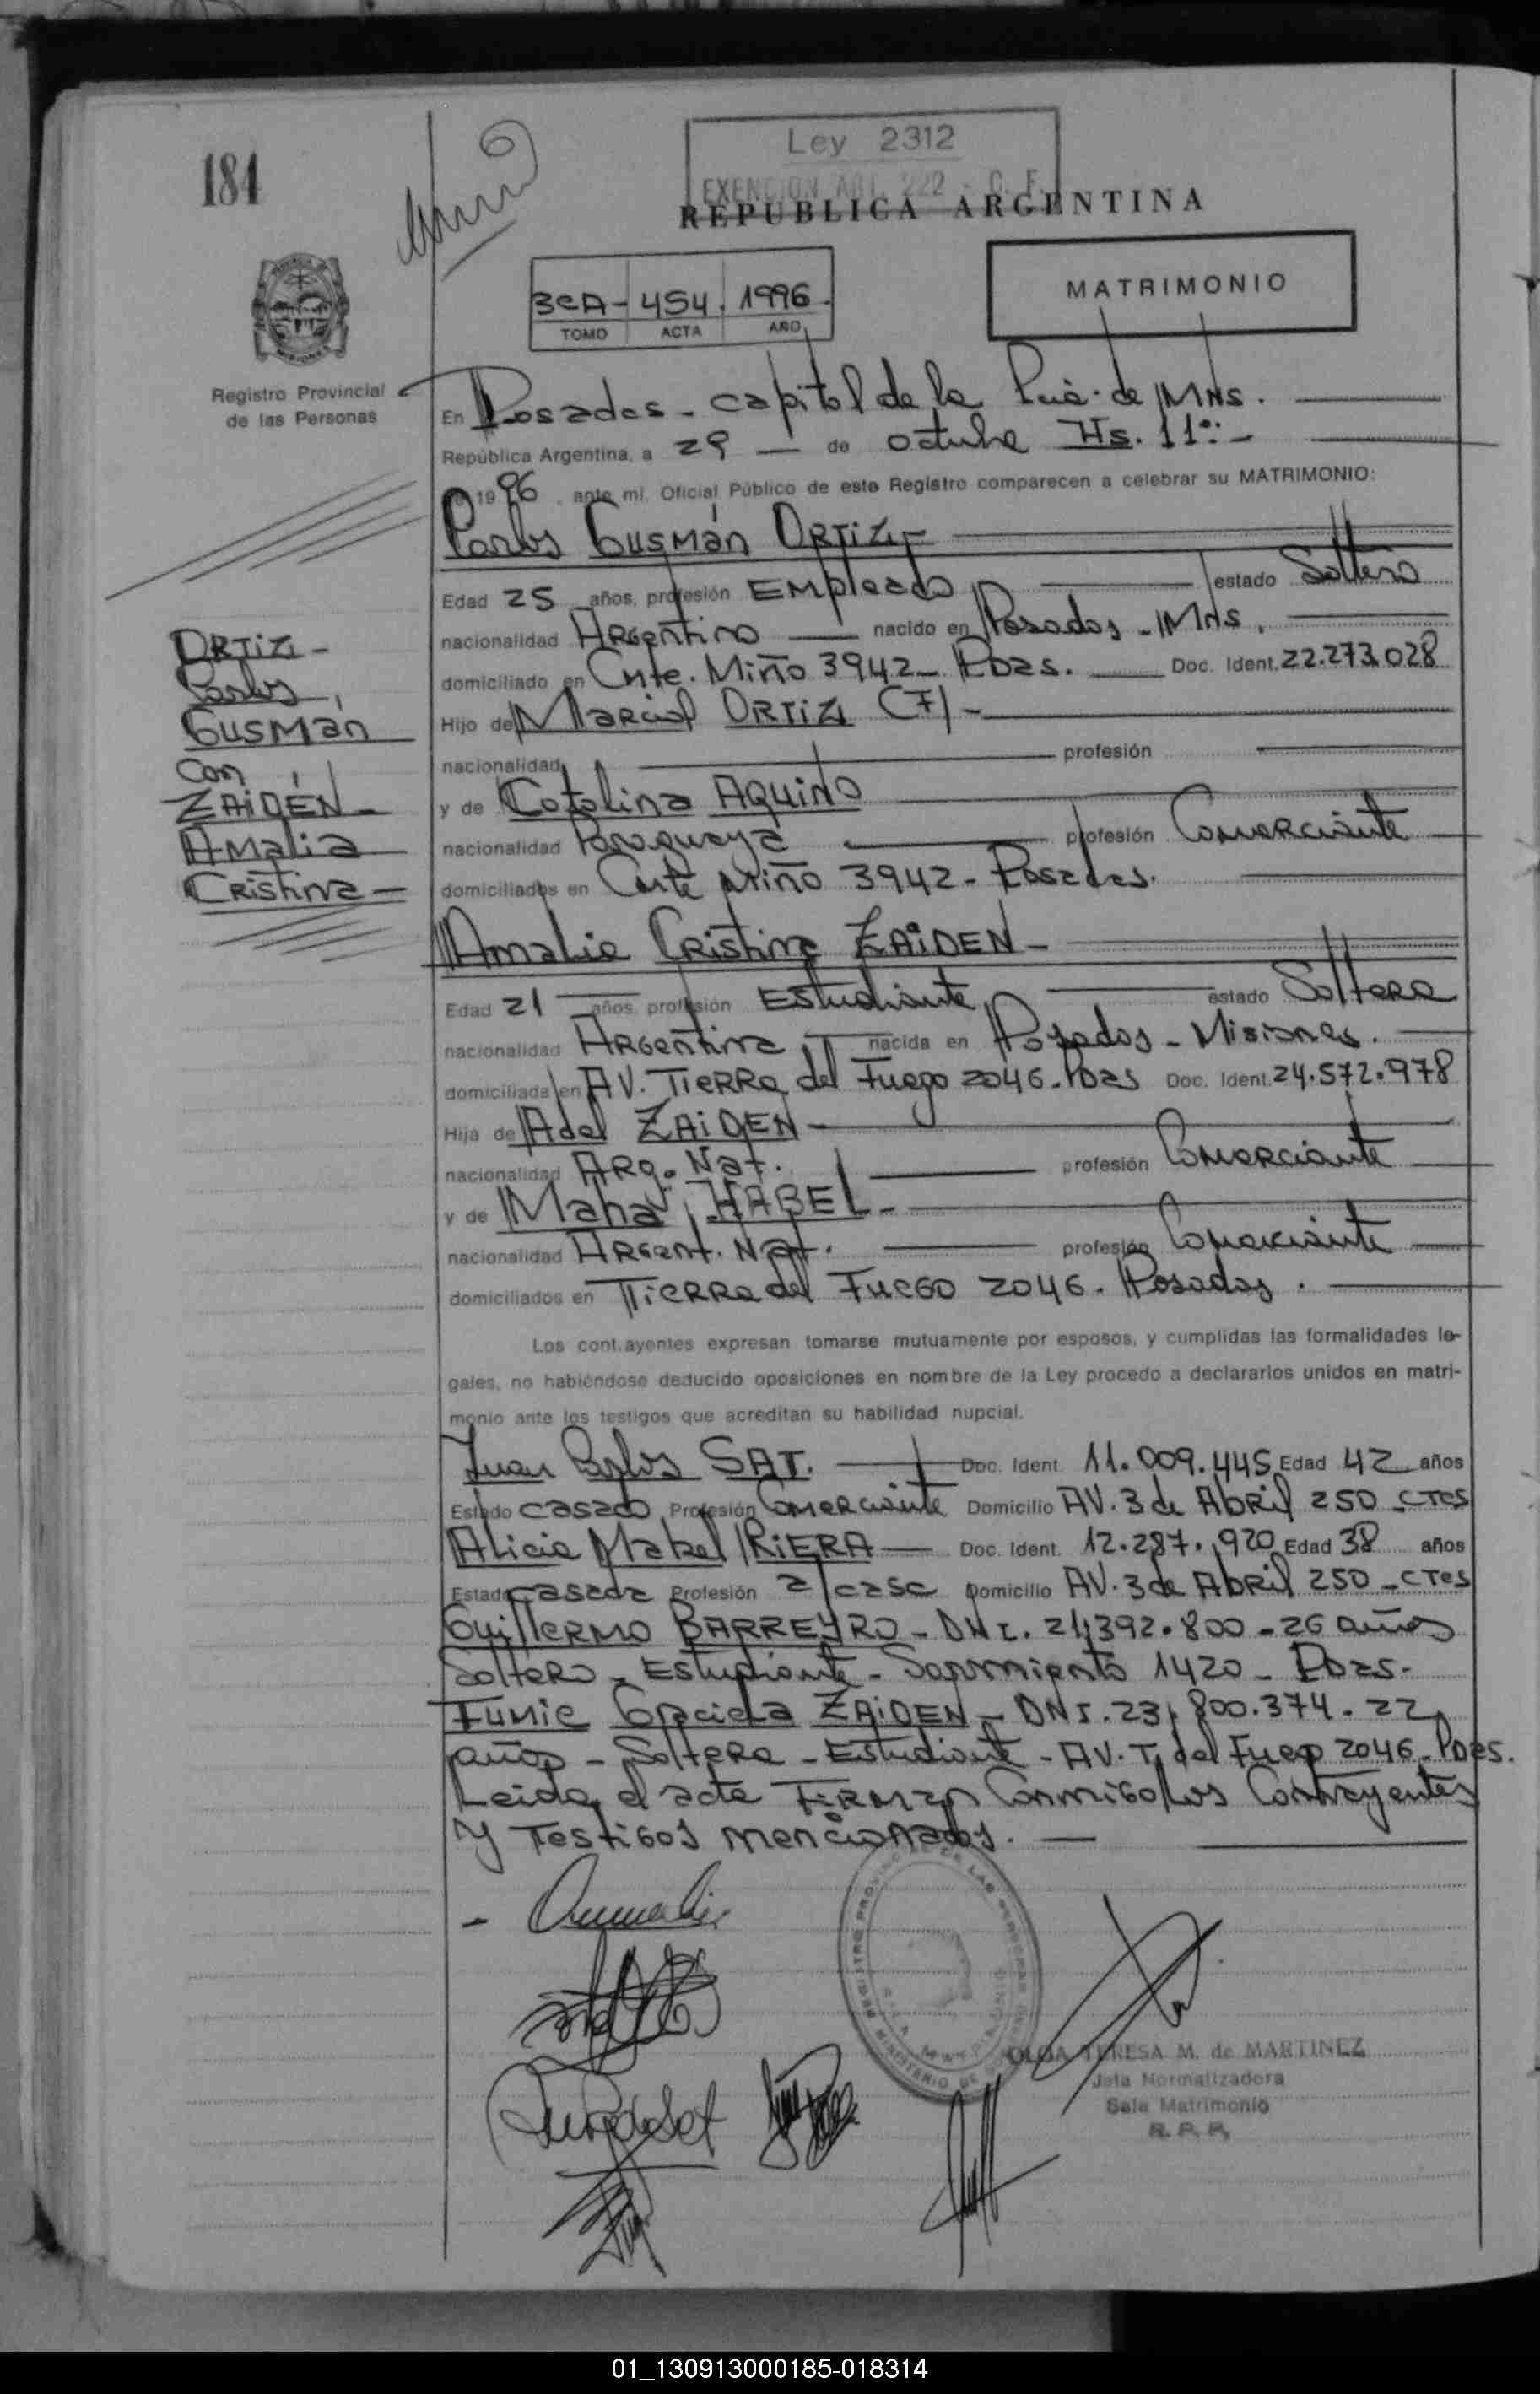 184
Ley 2312
EXENCION ART. 222 - C. F.
REPUBLICA ARGENTINA
3cA - 454. 1996.
TOMO ACTA AÑO
MATRIMONIO
Registro Provincial
de las Personas
En Posadas - capital de la Pcia. de Mns.
República Argentina, a 29 de octubre Hs. 11:
19 96, ante mí, Oficial Público de este Registro comparecen a celebrar su MATRIMONIO:
Carlos Gusmán ORTIZ -
Edad 25 años, profesión Empleado estado Soltero
nacionalidad Argentino nacido en Posadas - Mns.
domiciliado en Cnte. Miño 3942 - Pdas. Doc. Ident. 22.273.028
Hijo de Marcial ORTIZ (F) -
nacionalidad profesión
y de Catalina AQUINO
nacionalidad Paraguaya profesión Comerciante
domiciliados en Cnte Miño 3942 - Posadas.
ORTIZ -
Carlos,
Gusmán
con
ZAIDÉN -
Amalia
Cristina -
Amalia Cristina ZAIDEN -
Edad 21 años, profesión Estudiante, estado Soltera
nacionalidad Argentina, nacida en Posadas - Misiones.
domiciliada en AV. Tierra del Fuego 2046 - Pdas Doc. Ident. 24.572.978
Hija de Adel ZAIDEN -
nacionalidad Arg. Nat. profesión Comerciante
y de Maha HABEL -
nacionalidad Argent. Nat. profesión Comerciante
domiciliados en Tierra del Fuego 2046. Posadas.
Los contrayentes expresan tomarse mutuamente por esposos, y cumplidas las formalidades le-
gales, no habiéndose deducido oposiciones en nombre de la Ley procedo a declararlos unidos en matri-
monio ante los testigos que acreditan su habilidad nupcial.
Juan Carlos SAT. Doc. Ident. 11.009.445 Edad 42 años
Estado casado, Profesión Comerciante Domicilio AV. 3 de Abril 250 - CTes
Alicia Mabel RIERA Doc. Ident. 12.287.920 Edad 38 años
Estado casada Profesión a/casa Domicilio AV. 3 de Abril 250 - CTes
Guillermo BARREYRO - DNI. 21.392.800 - 26 años
Soltero - Estudiante - Sarmiento 1420 - Pdas.
Funic Graciela ZAIDEN - DNI. 23.800.374. 22
años - Soltera - Estudiante - AV. T. del Fuego 2046 - Pdas.
Leida el acta Firman Conmigo los Contrayentes
y Testigos mencionados.
Amalia
OLGA TERESA M. de MARTINEZ
Jefa Normalizadora
Sala Matrimonio
R. P. P.
01_130913000185-018314